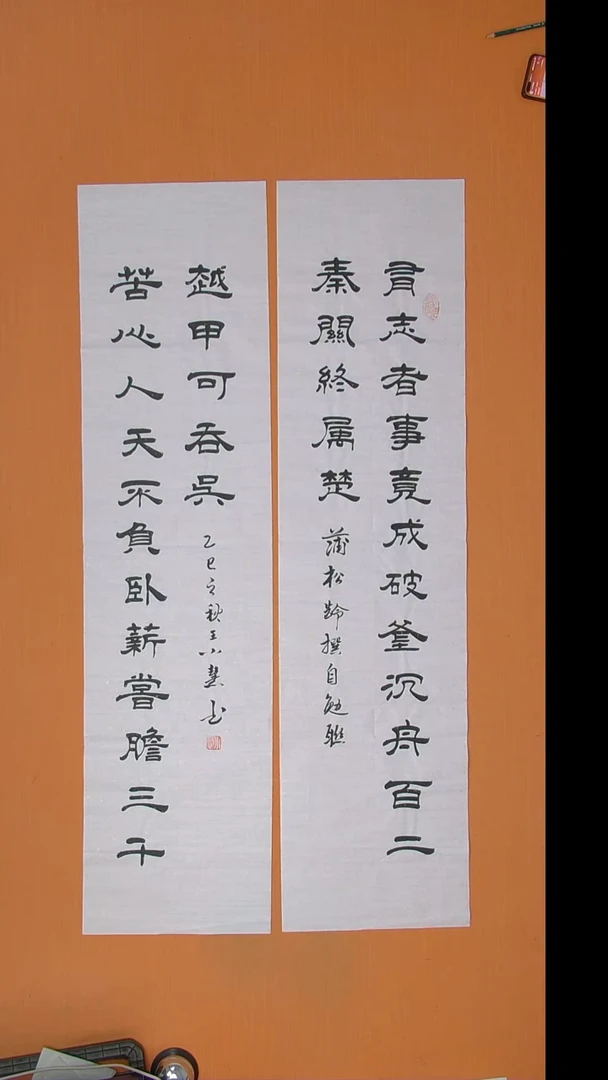 有志者事竟成破釜沉舟百二
秦關終属楚
蒲松龄撰自勉聯
苦心人天不負卧薪嘗膽三千
越甲可吞吳
乙巳之秋王小慧书